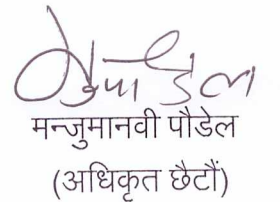 मन्जुमानवी पौडेल
(अधिकृत छैटौं)